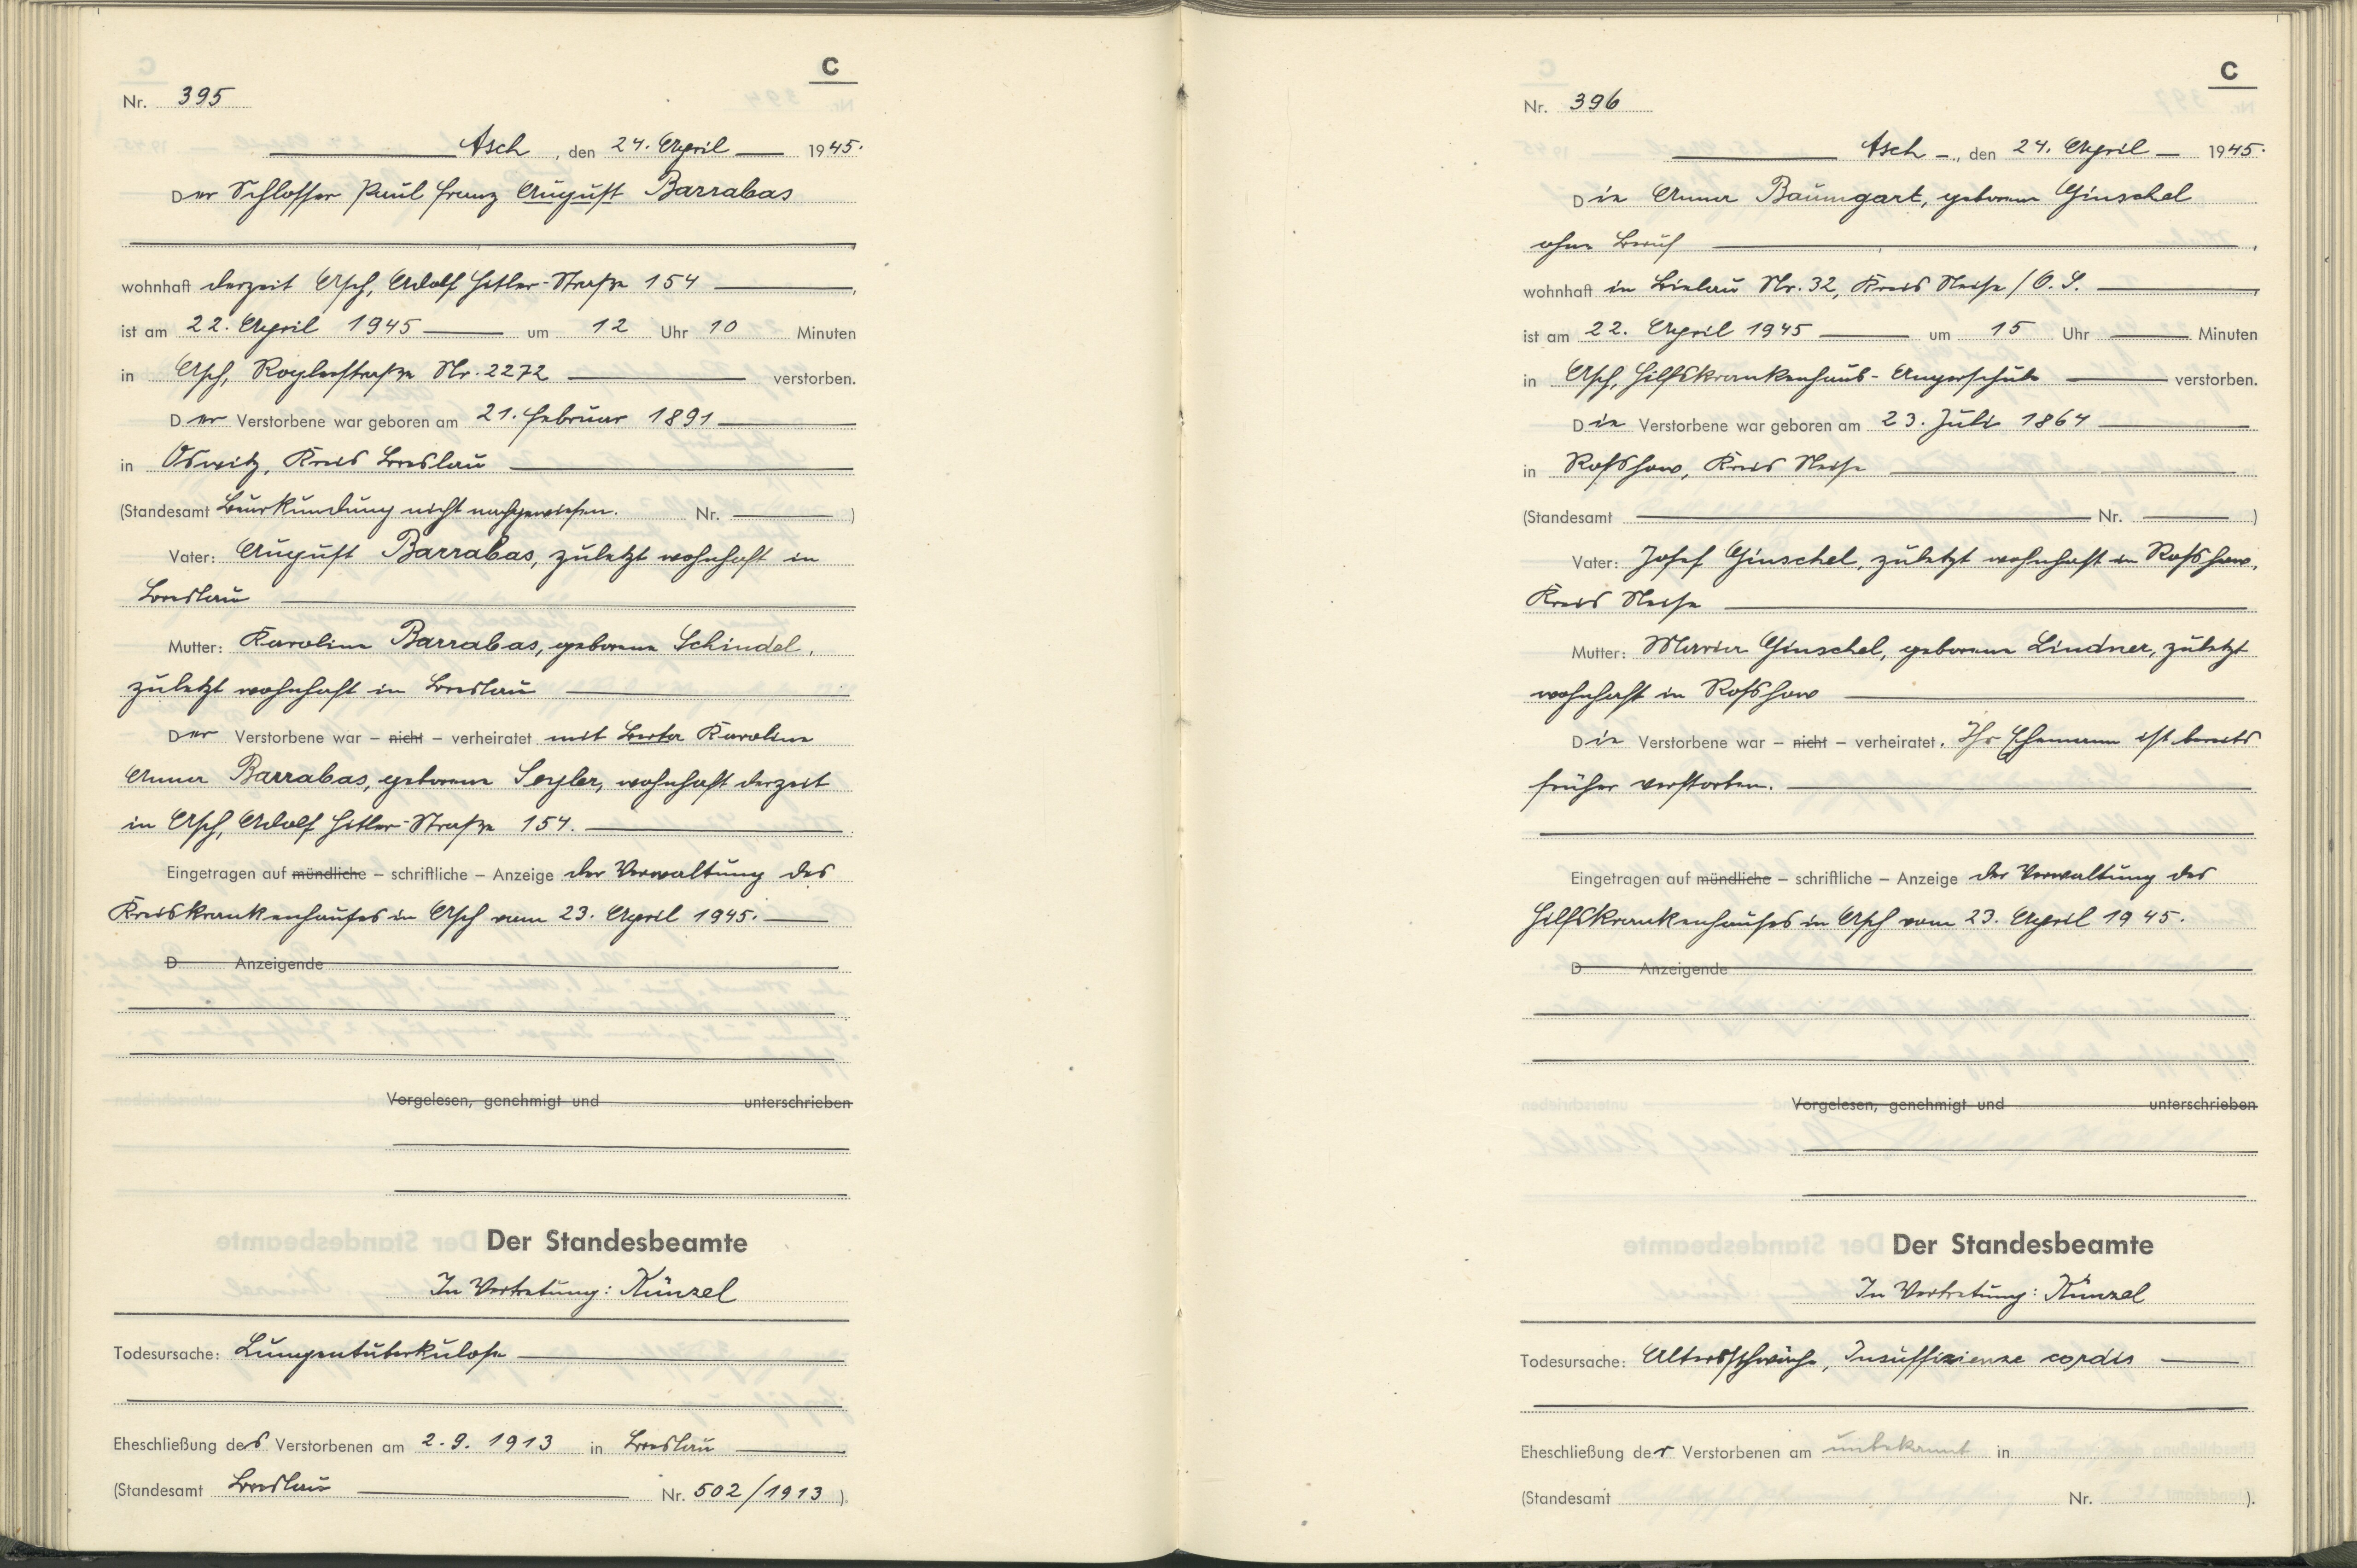 C
Nr. 395
Asch, den 24. April 1945.
Der Schlosser Paul Franz August Barrabas
wohnhaft derzeit Asch, Adolf Hitler-Straße 154,
ist am 22. April 1945 um 12 Uhr 10 Minuten
in Asch, Roglerstraße Nr. 2272 verstorben.
Der Verstorbene war geboren am 21. Februar 1891
in Oswitz, Kreis Breslau
(Standesamt Beurkundung nicht nachgewiesen. Nr. )
Vater: August Barrabas, zuletzt wohnhaft in
Breslau
Mutter: Karoline Barrabas, geborene Schindel,
zuletzt wohnhaft in Breslau
Der Verstorbene war – nicht – verheiratet mit Berta Karoline
Anna Barrabas, geborene Seyler, wohnhaft derzeit
in Asch, Adolf Hitler-Straße 154.
Eingetragen auf mündliche – schriftliche – Anzeige der Verwaltung des
Kreiskrankenhauses in Asch vom 23. April 1945.
D Anzeigende
Vorgelesen, genehmigt und unterschrieben
Der Standesbeamte
In Vertretung: Künzel
Todesursache: Lungentuberkulose
Eheschließung des Verstorbenen am 2.9.1913 in Breslau
(Standesamt Breslau Nr. 502/1913).
C
Nr. 396
Asch, den 24. April 1945.
Die Anna Baumgart, geborene Ginschel
ohne Beruf,
wohnhaft in Bielau Nr. 32, Kreis Neise / O. S.
ist am 22. April 1945 um 15 Uhr Minuten
in Asch, Hilfskrankenhaus-Angerschule verstorben.
Die Verstorbene war geboren am 23. Juli 1864
in Kreis Neise
(Standesamt Nr. )
Vater: Josef Ginschel, zuletzt wohnhaft in
Kreis Neise
Mutter: Maria Ginschel, geborene Lindner, zuletzt
wohnhaft in
Die Verstorbene war – nicht – verheiratet. Ihr Ehemann ist bereits
früher verstorben.
Eingetragen auf mündliche – schriftliche – Anzeige der Verwaltung des
Hilfskrankenhauses in Asch vom 23. April 1945.
D Anzeigende
Vorgelesen, genehmigt und unterschrieben
Der Standesbeamte
In Vertretung: Künzel
Todesursache: Altersschwäche, Insuffizienze cordis
Eheschließung der Verstorbenen am unbekannt in
(Standesamt Nr. ).